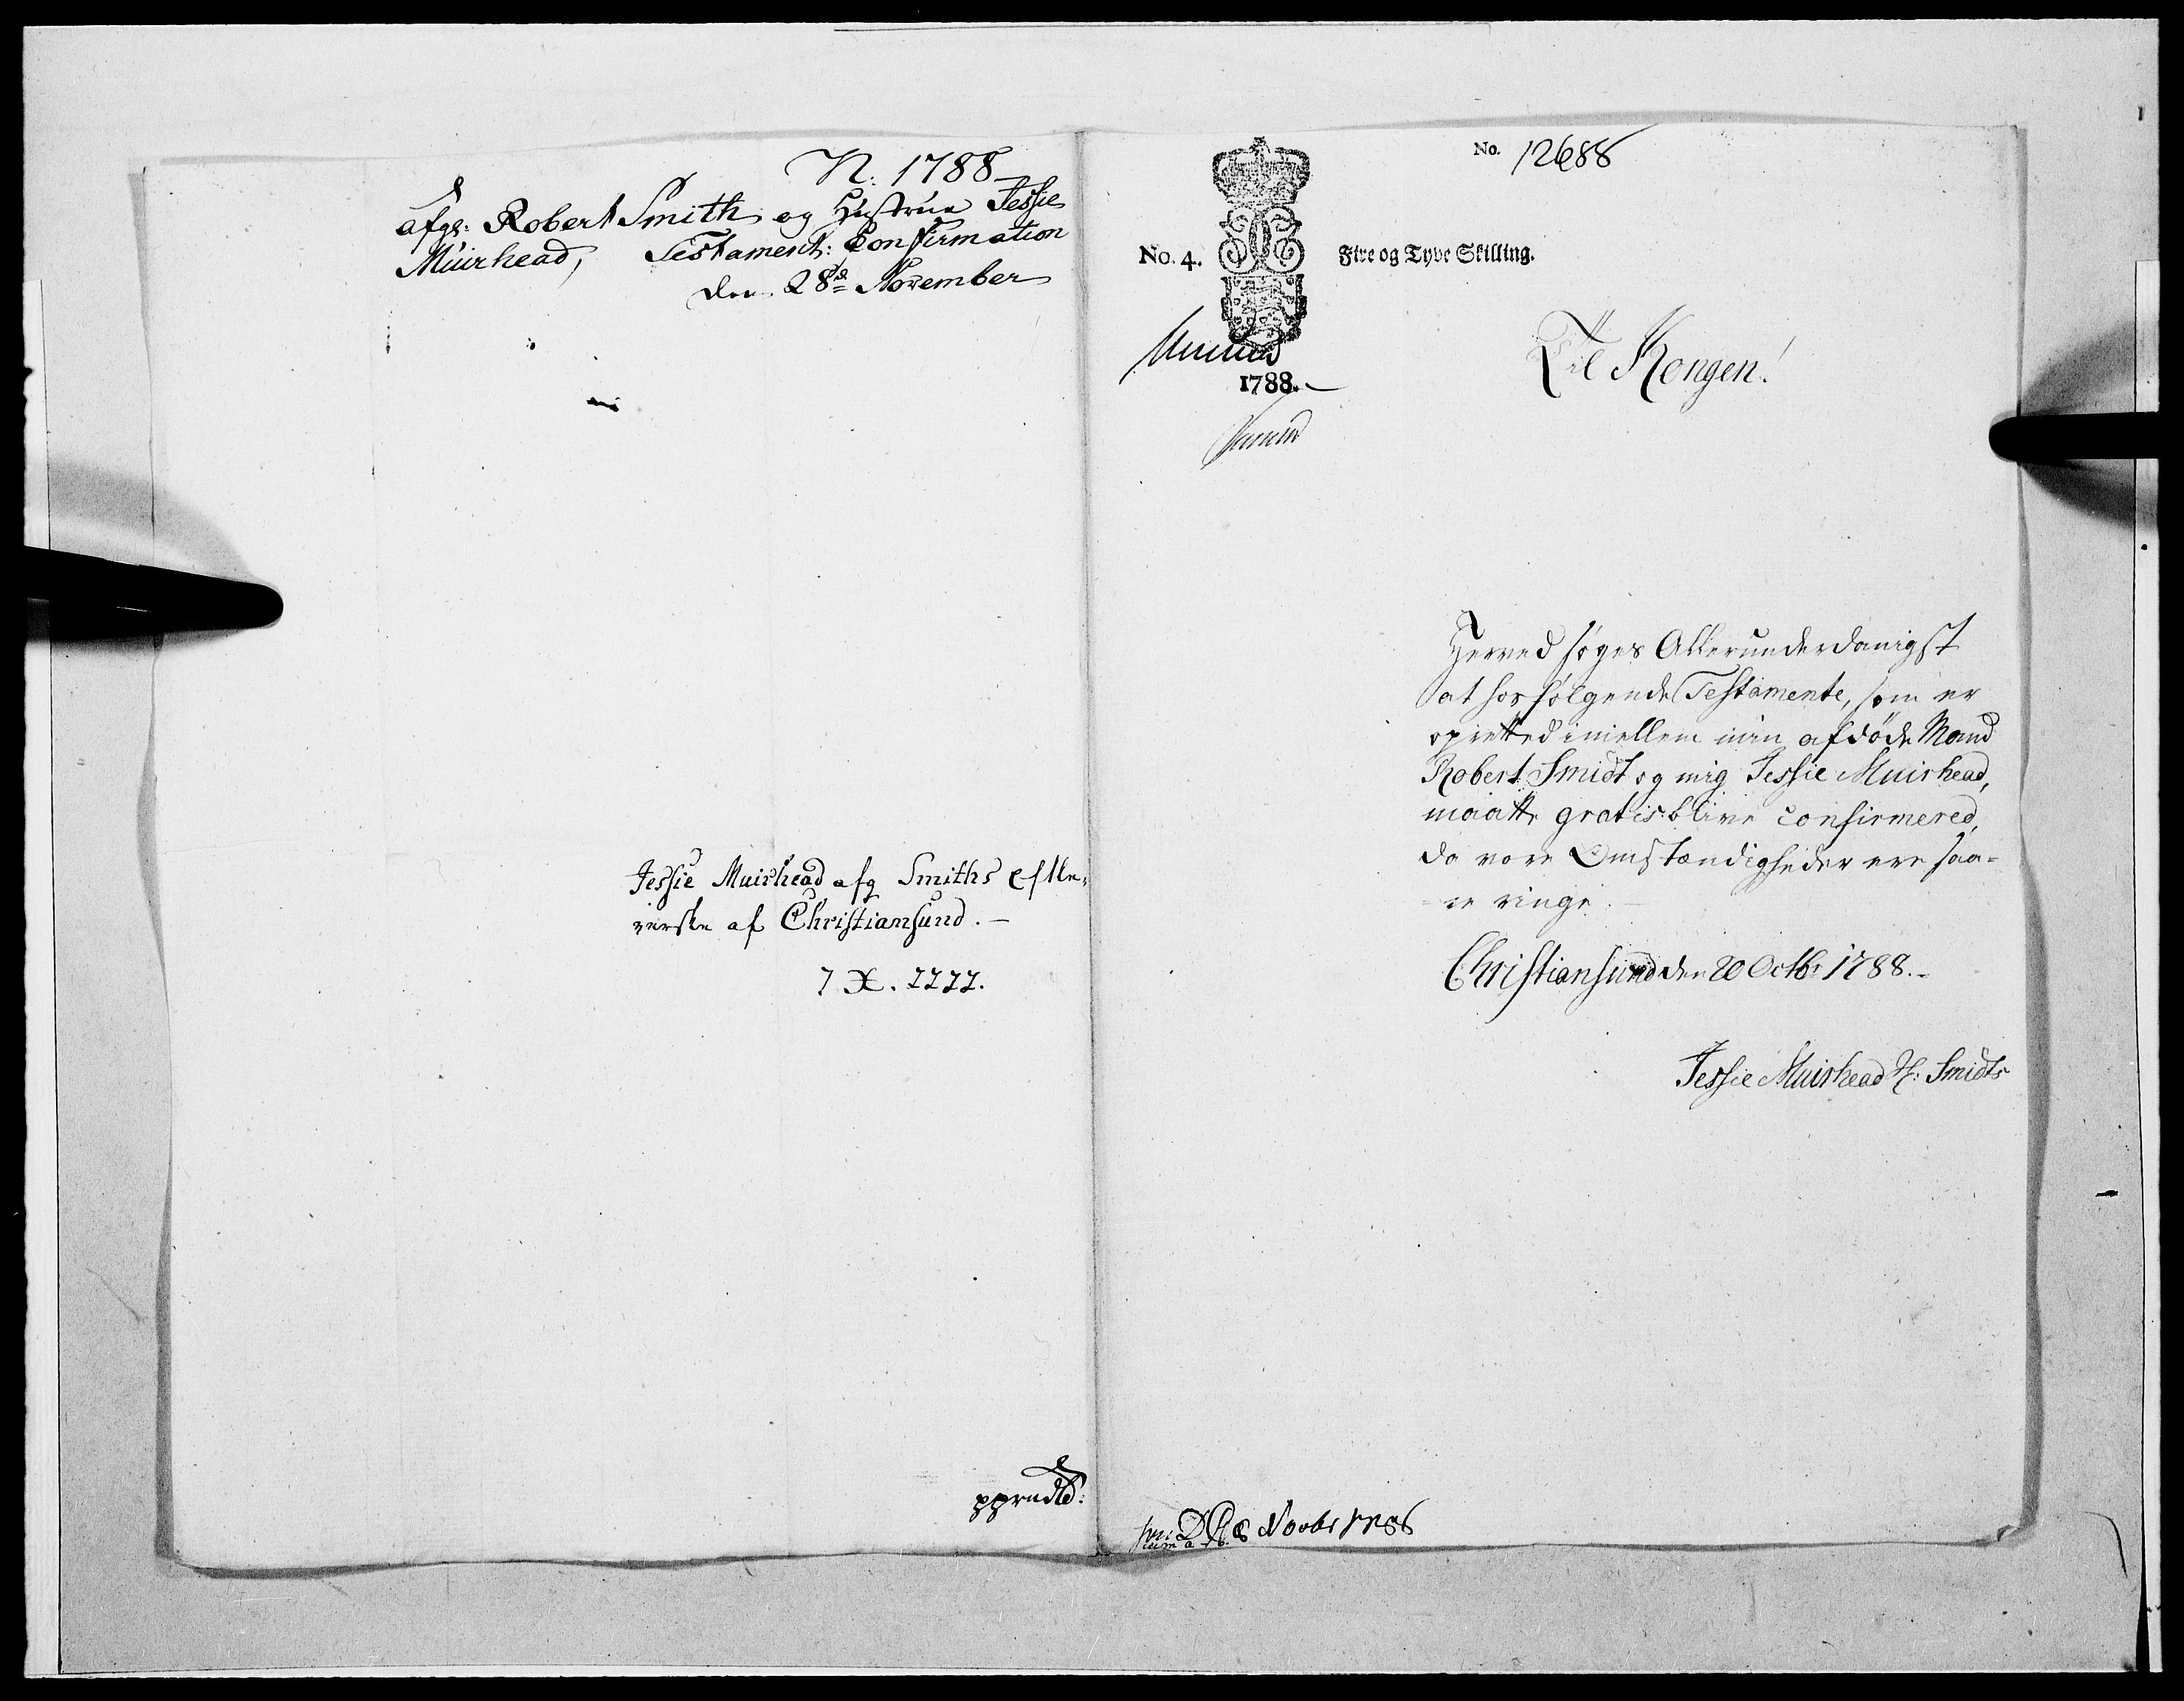 N: 1788
afg: Robert Smith og Hustrue Jessie
Muirhead, Testament: Confirmation
den 28de November
Jessie Muirhead afg Smiths Efterle-
verske af Christiansund.
7 X.
No. 12688
No. 4. Fire og Tyve Skilling.
1788.
Til Kongen!
Herved søges Allerunderdanigst
at hosfølgende Testamente, som er
opretted imellem min afdøde Mand
Robert Smidt og mig Jessie Muirhead,
maatte gratis blive confirmered,
da vore Omstændigheder ere saa-
re ringe.
Christiansund den 20 Octbr 1788.
Jessie Muirhead Sl: Smidts
Novbr